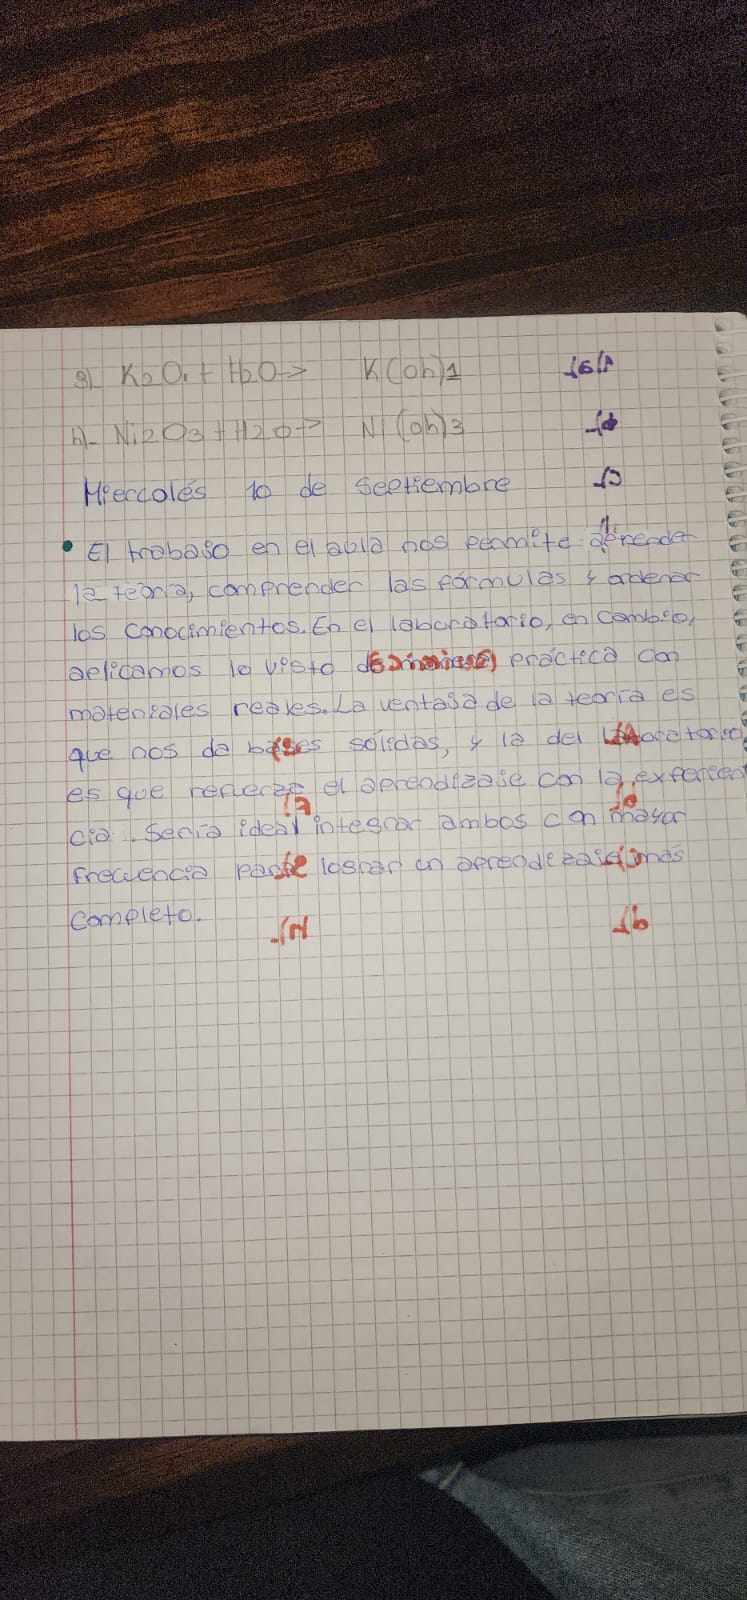 g)- K2O1 + H2O -> K(oh)1
h)- Ni2O3 + H2O -> Ni(oh)3
Miercolés 10 de Septiembre
• El trabajo en el aula nos permite aprender
la teoría, comprender las fórmulas y ordenar
los conocimientos. En el laboratorio, en cambio,
aplicamos lo visto de manera práctica con
materiales reales. La ventaja de la teoría es
que nos da bases sólidas, y la del laboratorio
es que refuerza el aprendizaje con la experien
cia. Sería ideal integrar ambos con mayor
frecuencia para lograr un aprendizaje más
completo.